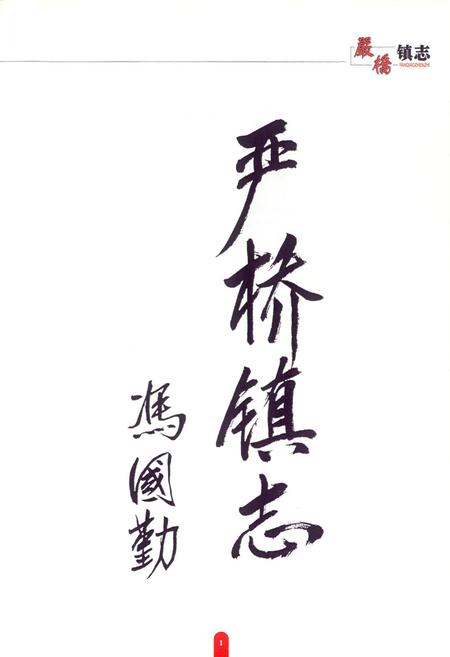 嚴橋 镇志
YANQIAOZHENZHI
严桥镇志
馮國勤
1